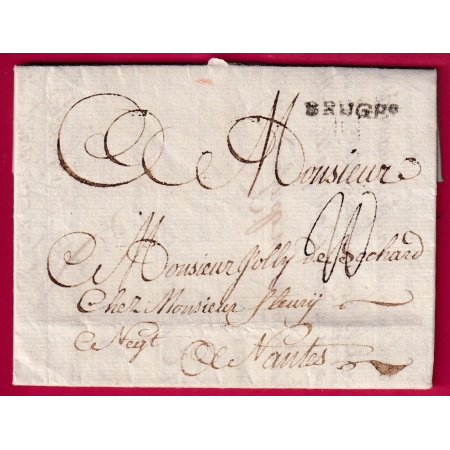 BRUGES
A Monsieur
Monsieur Jolly de Bochard
Chez Monsieur fleury
Negt
A Nantes